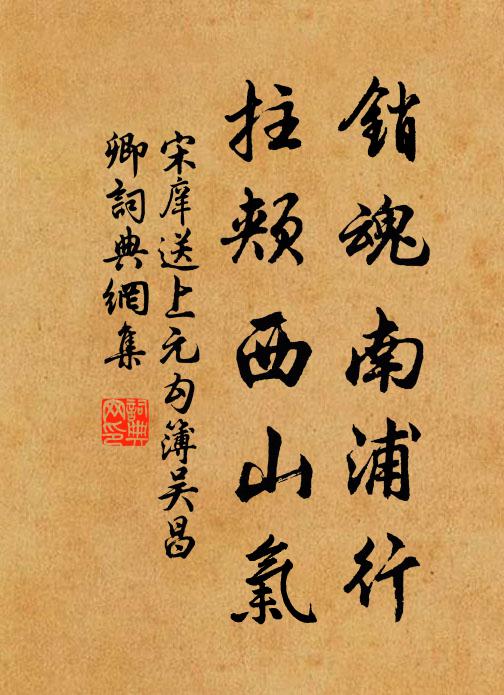 銷魂南浦行
拄頰西山氣
宋庠送上元勾簿吳昌
卿詞典網集
詞典
网印